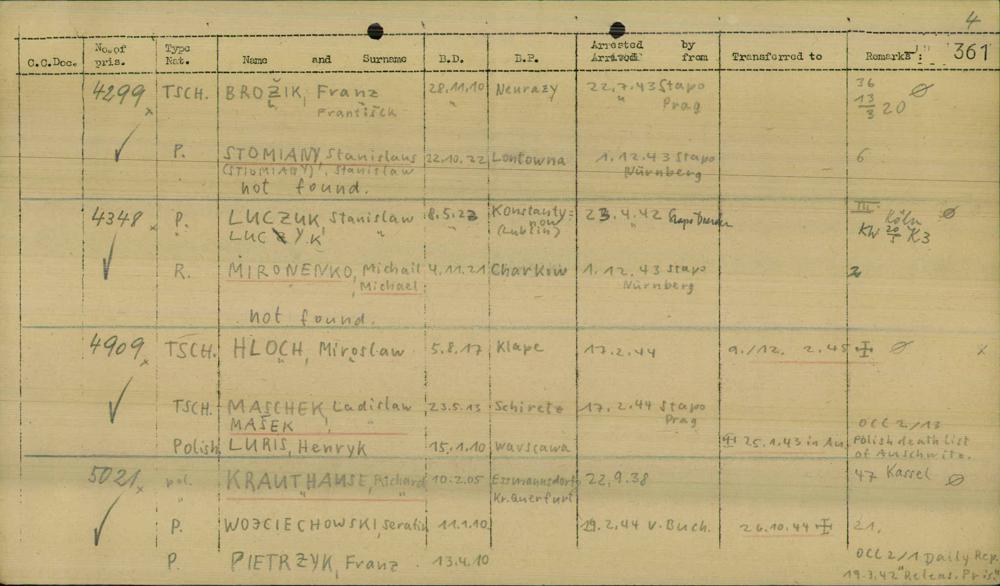 4
C.C.Doc. No. of pris. Type Nat. Name and Surname B.D. B.P. Arrested Arrived by from Transferred to Remarks: 361
4299 x TSCH. BROŽIK, Franz 28.11.10 Neurazy 22.7.43 Stapo 36
František " Prag 13/3 20 Ø
✓ P. STOMIANY, Stanislaus 22.10.22 Lontowna 1.12.43 Stapo 6
(STIOMIANY), Stanislaw Nürnberg
not found.
4348 x P. LUCZUK, Stanislaw 8.5.23 Konstanty= 23.4.42 III Ø
LUCZYK " " now (Lublin) " Köln
KW 20/5 K3
✓ R. MIRONENKO, Michail 4.11.21 Charkow 1.12.43 Stapo 2
Michael Nürnberg
not found.
4909 x TSCH. HLOCH, Miroslaw 5.8.17 Klape 17.2.44 9./12. 2.45 ✠ Ø x
✓ TSCH. MASCHEK, Ladislaw 23.5.13 Schiretz 17.2.44 Stapo
MAŠEK Prag OCC 2/13
Polish LURIS, Henryk 15.1.10 Warscawa ✠ 25.1.43 in Au. Polish death list
of Auschwitz.
5021 x pol. KRAUTHAUSE, Richard 10.2.05 Ezzmannsdorf 22.9.38 47 Kassel Ø
" Kr. Querfurt
✓ P. WOJCIECHOWSKI, Serafin 11.1.10 19.2.44 v. Buch. 26.10.44 ✠ 21.
P. PIETRZYK, Franz 13.4.10 OCC 2/1 Daily Rep.
19.3.42 "Releas. Pris"